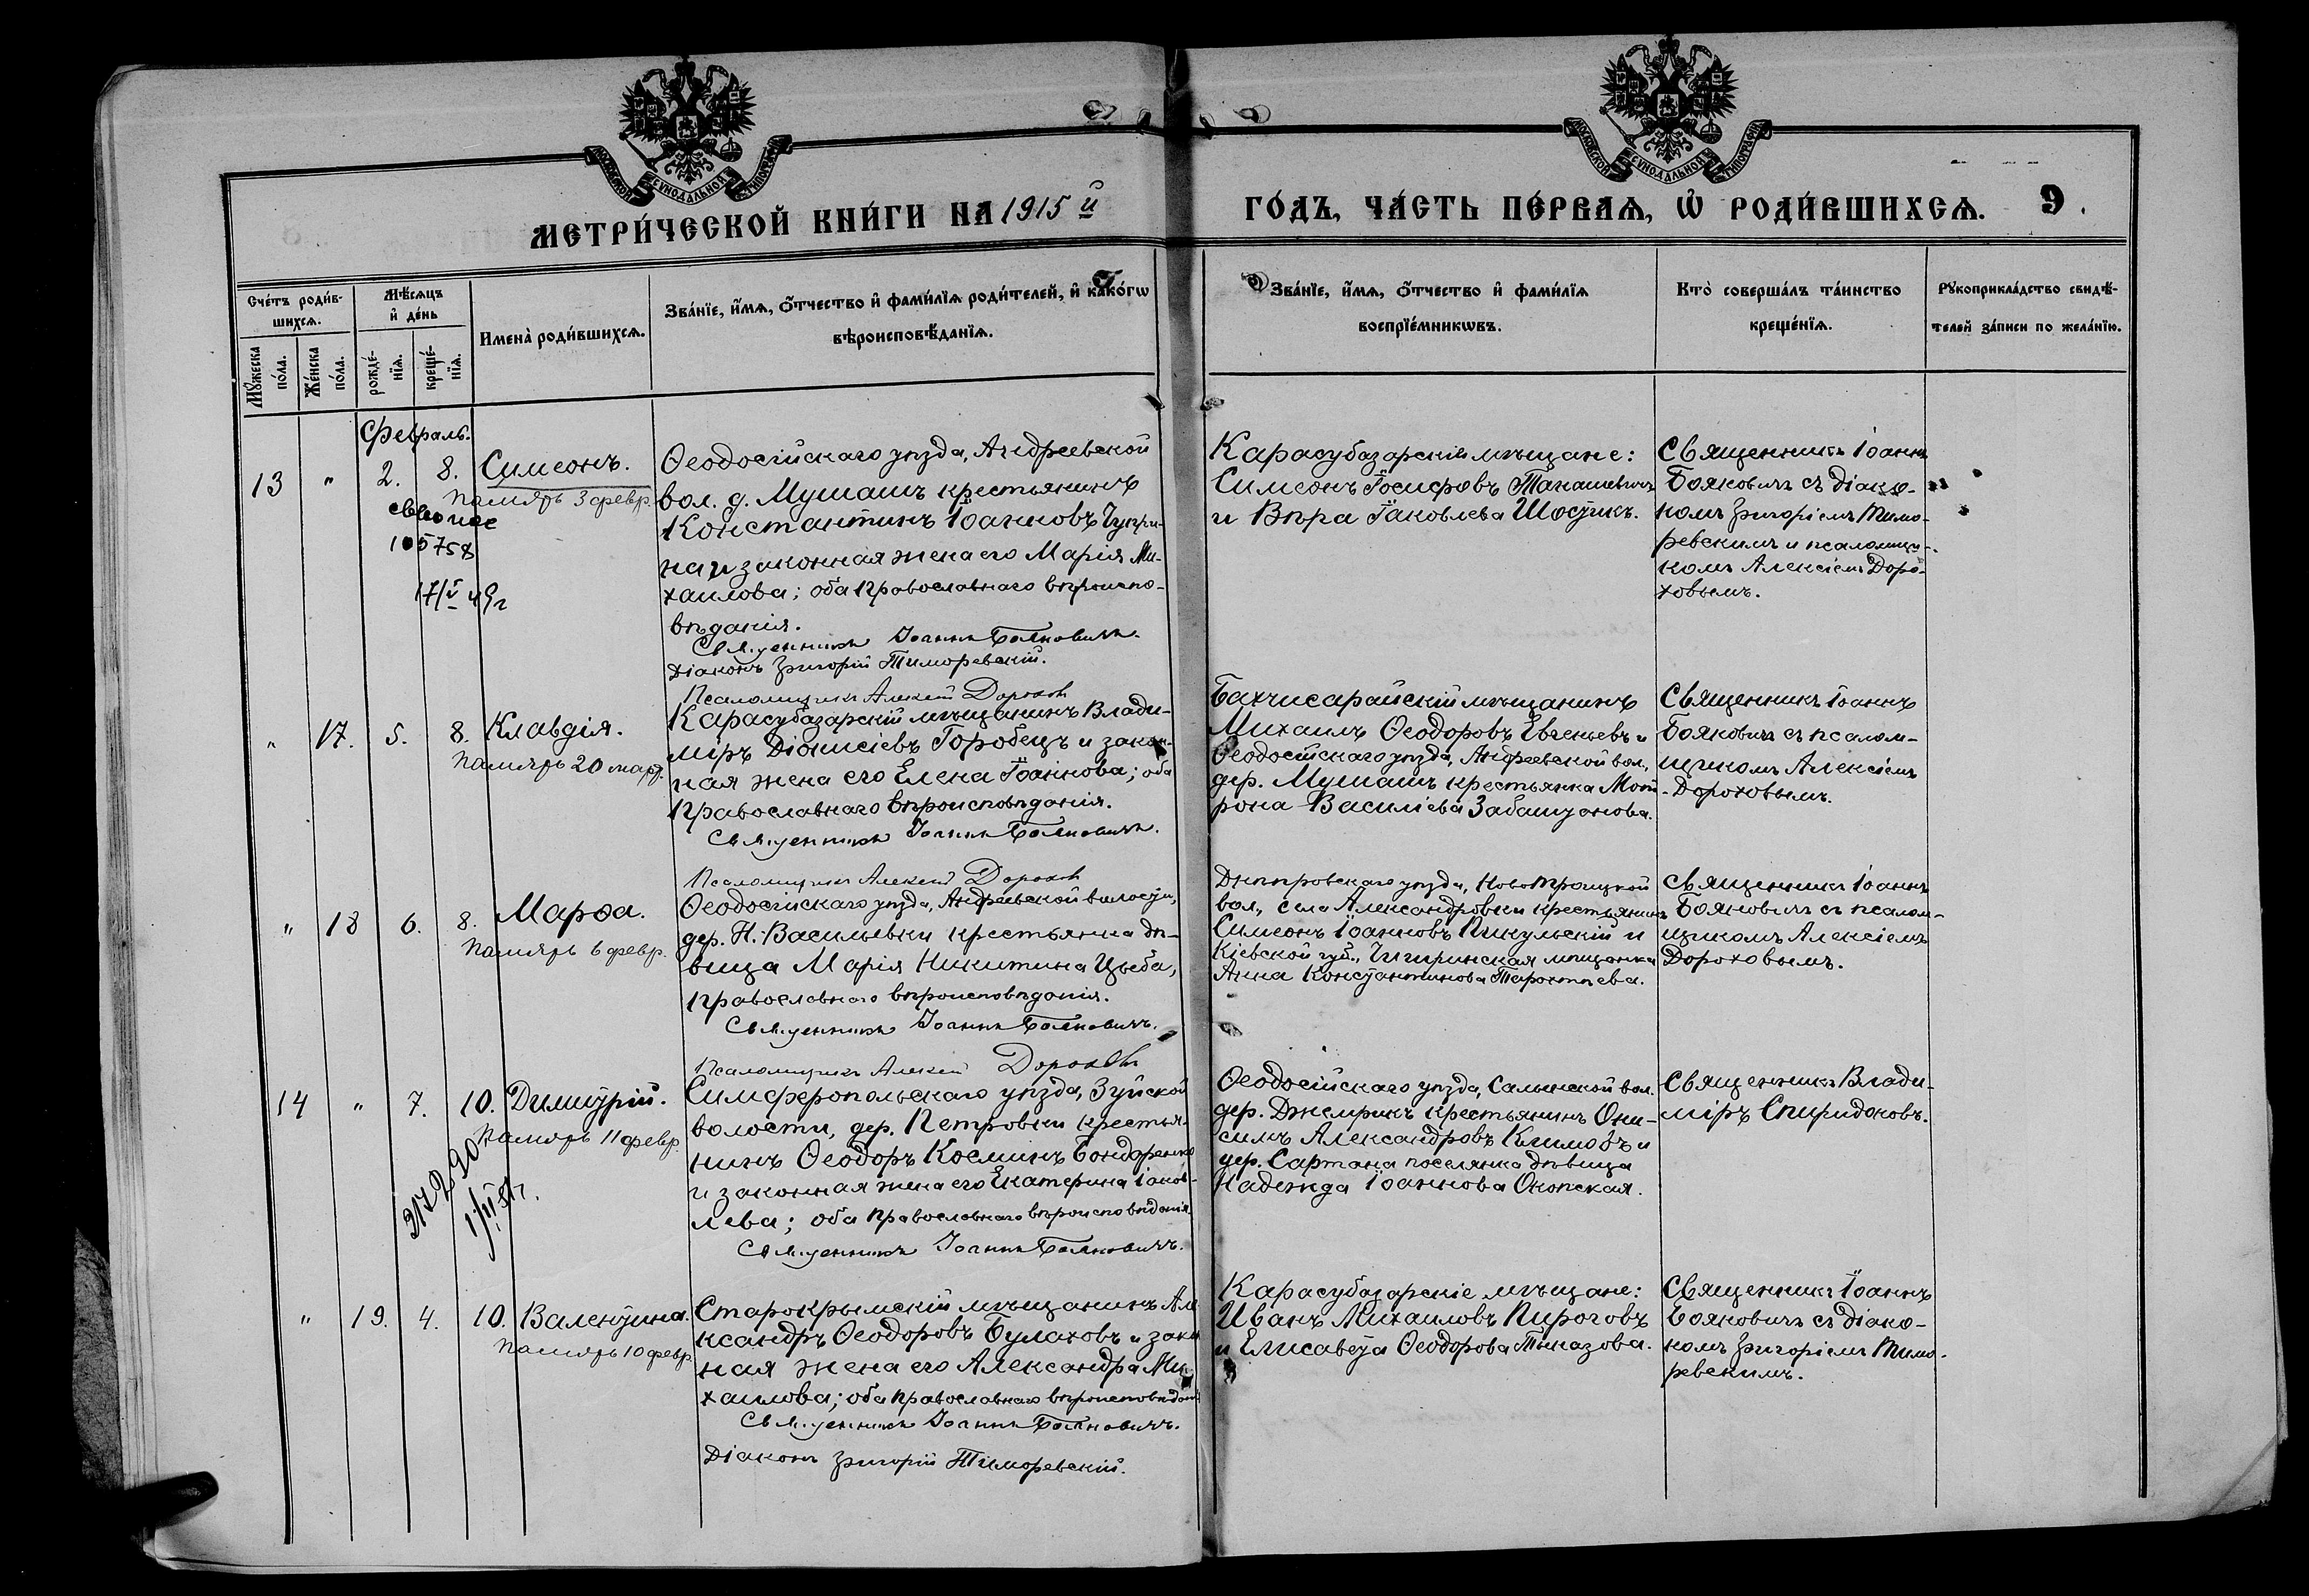 МОСКОВСКОЙ СѴНОДАЛЬНОЙ ТИПОГРАФІИ
МОСКОВСКОЙ СѴНОДАЛЬНОЙ ТИПОГРАФІИ
МЕТРИ́ЧЕСКОЙ КНИ́ГИ НА 1915 й
ГО́ДЪ, ЧА́СТЬ ПЕ́РВАѦ, Ѡ РОДИ́ВШИХСѦ. 9.
Сче́тъ роди́в-
шихсѧ.
Мꙋ́жеска
по́ла.
Же́нска
по́ла.
Мѣ́сѧцъ
и҆ де́нь
рожде́-
нїѧ.
креще́-
нїѧ.
Имена̀ роди́вшихсѧ.
Зва́нїе, и҆́мѧ, ѻ҆́тчество и҆ фами́лїѧ роди́телей, и҆ како́гѡ
вѣроисповѣ́данїѧ.
Зва́нїе, и҆́мѧ, ѻ҆́тчество и҆ фами́лїѧ
воспрїе́мникѡвъ.
Кто̀ соверша́лъ та́инство
креще́нїѧ.
Рꙋкоприкла́дство свидѣ́-
телей за́писи по жела́нїю.
Февраль.
13 " 2. 8. Симеонъ.
Память 3 февр.
105758
17/V 49г
Ѳеодосійскаго уѣзда, Андреевской
вол. д. Мушашъ крестьянинъ
Константинъ Іоанновъ Чупри-
на и законная жена его Марія Ми-
хаилова; оба православнаго вѣроиспо-
вѣданія.
Священникъ Іоаннъ Бояновичъ.
Діаконъ Григорій Тиморевскій.
Псаломщикъ Алексій Дороховъ
Карасубазарскіе мѣщане:
Симеонъ Іосифовъ Танашевичъ
и Вѣра Іаковлева Шостикъ.
Священникъ Іоаннъ
Бояновичъ съ діако-
номъ Григоріемъ Тимо-
ревскимъ и псаломщи-
комъ Алексіемъ Доро-
ховымъ.
" 17. 5. 8. Клавдія.
Память 20 март.
Карасубазарскій мѣщанинъ Влади-
міръ Діонисіевъ Горобецъ и закон-
ная жена его Елена Іоаннова; оба
православнаго вѣроисповѣданія.
Священникъ Іоаннъ Бояновичъ.
Псаломщикъ Алексій Дороховъ
Бахчисарайскій мѣщанинъ
Михаилъ Ѳеодоровъ Евгеньевъ и
Ѳеодосійскаго уѣзда, Андреевской вол.,
дер. Мушашъ крестьянка Мот-
рона Василіева Забаштанова.
Священникъ Іоаннъ
Бояновичъ съ псалом-
щикомъ Алексіемъ
Дороховымъ.
" 18 6. 8. Марѳа.
Память 6 февр.
Ѳеодосійскаго уѣзда, Андреевской волости,
дер. Н.-Васильевки крестьянка дѣ-
вица Марія Никитина Цыба,
православнаго вѣроисповѣданія.
Священникъ Іоаннъ Бояновичъ.
Псаломщикъ Алексій Дороховъ
Днѣпровскаго уѣзда, Новотроицкой
вол., села Александровки крестьянинъ
Симеонъ Іоанновъ Пикульскій и
Кіевской губ., Чигиринская мѣщанка
Анна Константинова Тарохтѣева.
Священникъ Іоаннъ
Бояновичъ съ псалом-
щикомъ Алексіемъ
Дороховымъ.
14 " 7. 10. Димитрій.
Память 11 февр.
Симферопольскаго уѣзда, Зуйской
волости, дер. Петровки крестья-
нинъ Ѳеодоръ Косминъ Бондаренко
и законная жена его Екатерина Іаков-
лева; оба православнаго вѣроисповѣданія.
Священникъ Іоаннъ Бояновичъ.
Ѳеодосійскаго уѣзда, Салынской вол.
дер. Джемрикъ крестьянинъ Они-
симъ Александровъ Климовъ и
дер. Сартана поселянка дѣвица
Надежда Іоаннова Окопская.
Священникъ Влади-
міръ Спиридоновъ.
" 19. 4. 10. Валентина.
Память 10 февр.
Старокрымскій мѣщанинъ Але-
ксандръ Ѳеодоровъ Булаховъ и закон
ная жена его Александра Ми-
хаилова; оба православнаго вѣроисповѣданія
Священникъ Іоаннъ Бояновичъ.
Діаконъ Григорій Тиморевскій.
Карасубазарскіе мѣщане:
Иванъ Михаиловъ Пироговъ
и Елисавета Ѳеодорова Тыназова.
Священникъ Іоаннъ
Бояновичъ съ діако-
номъ Григоріемъ Тимо-
ревскимъ.